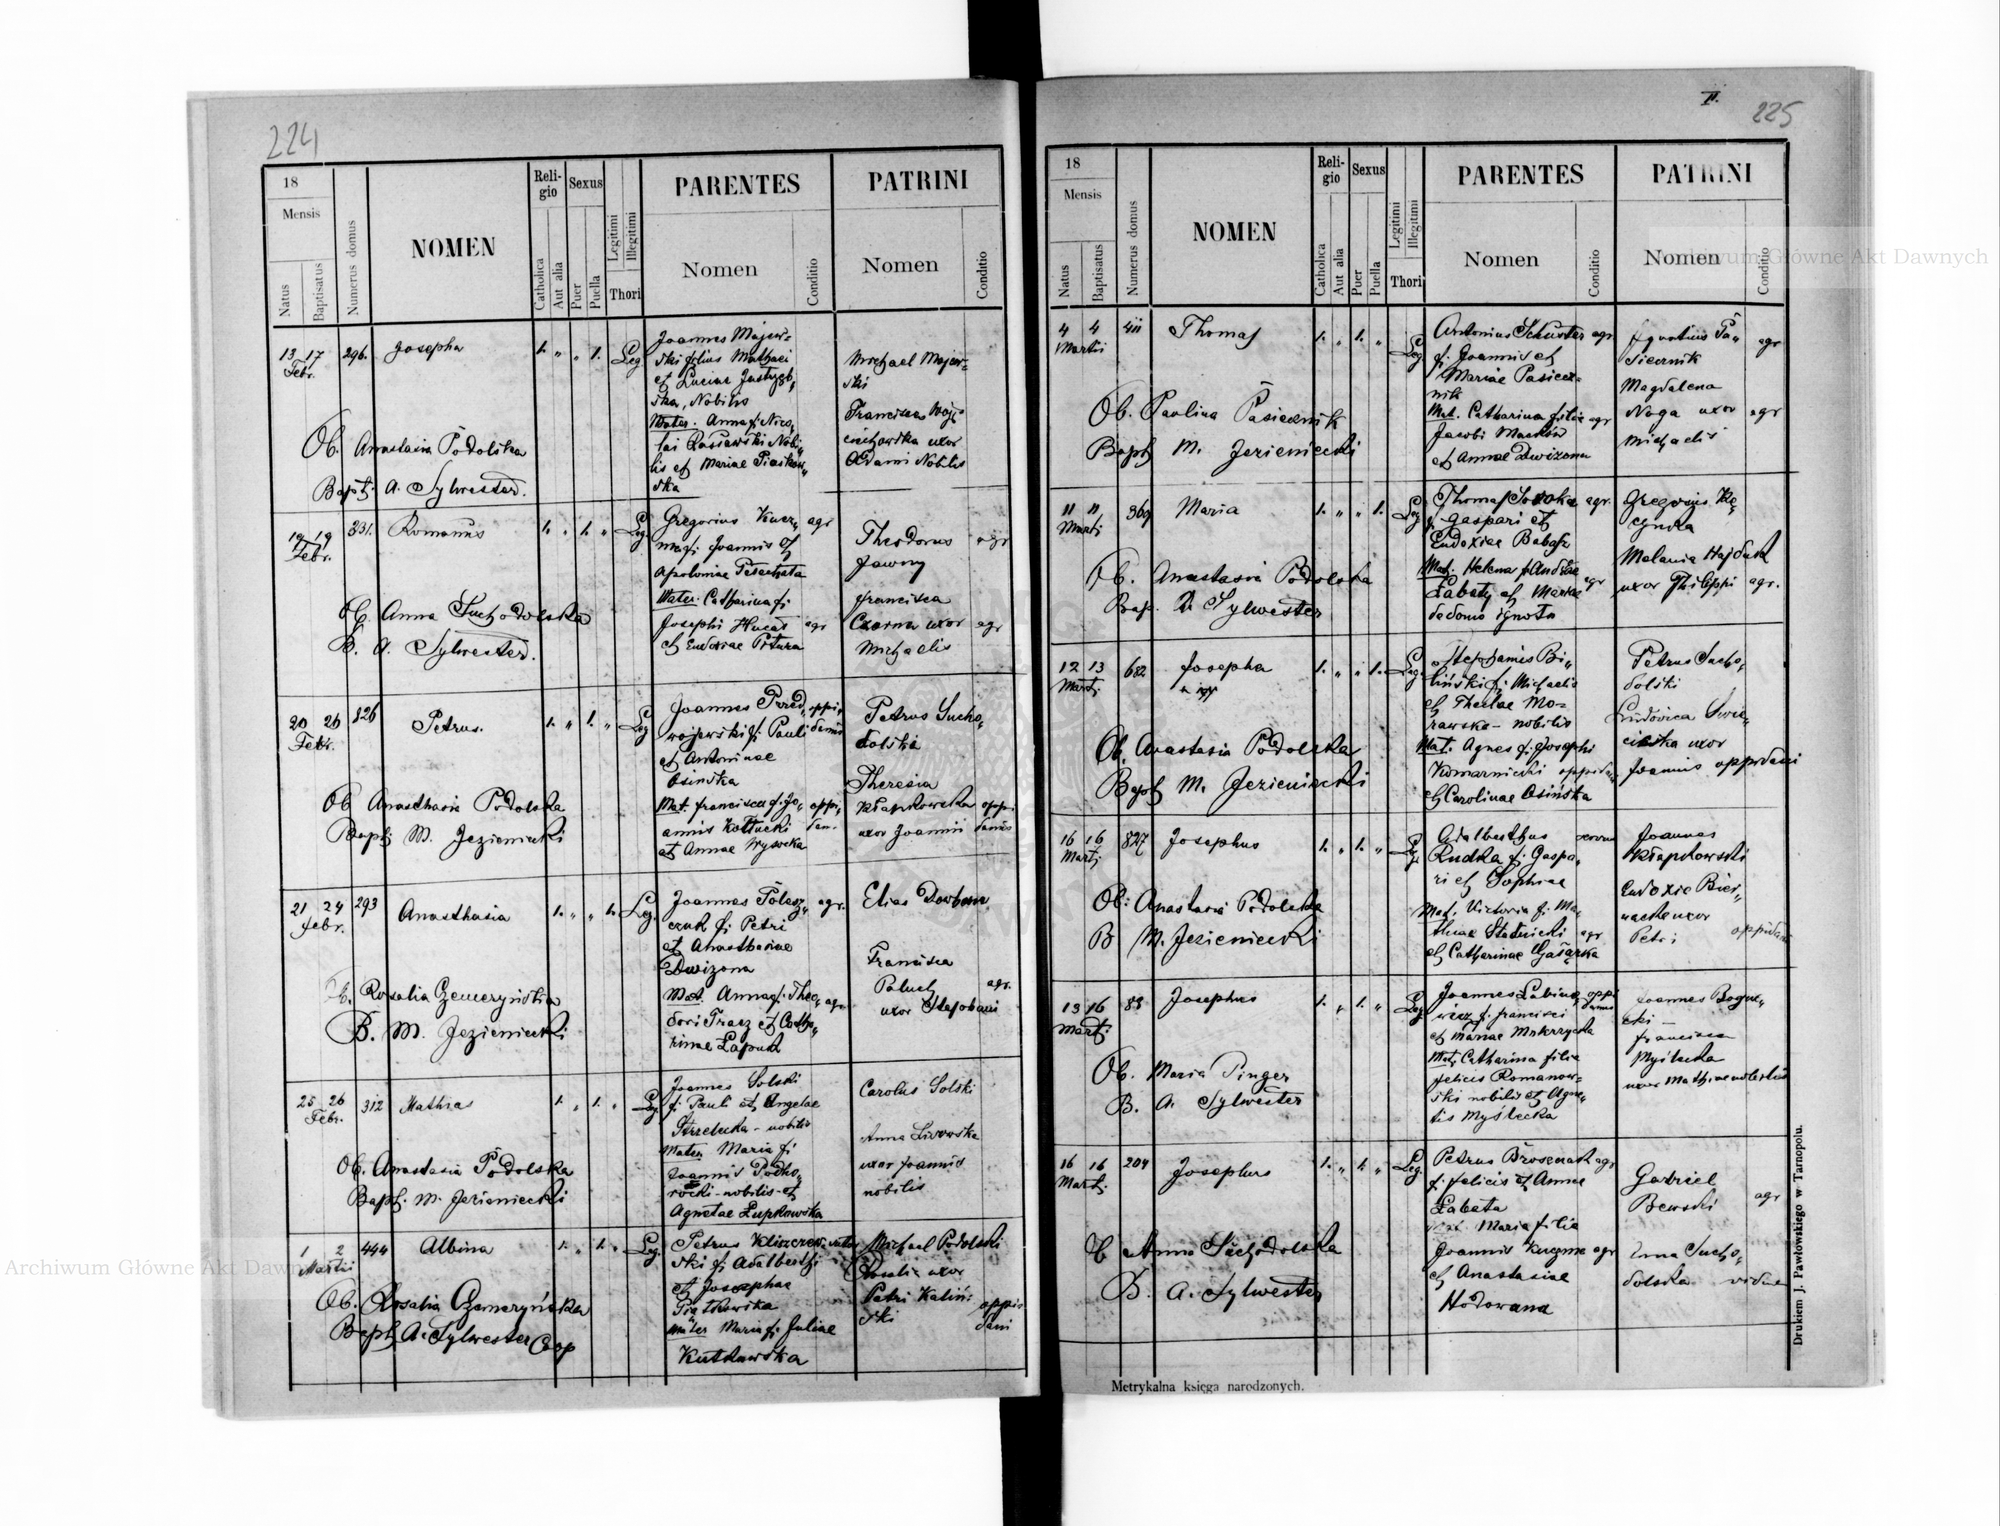 224
18
Mensis
Natus
Baptisatus
Numerus domus
NOMEN
Reli-
gio
Catholica
Aut alia
Sexus
Puer
Puella
Legitimi
Illegitimi
Thori
PARENTES
Nomen
Conditio
PATRINI
Nomen
Conditio
13 17
Febr.
296.
Josepha
1. " " 1.
Leg
Joannes Majew-
ski filius Mathaei
et Luciae
ska, Nobilis
Mater. Anna f. Nico-
lai Nobi-
lis et Mariae Piaskow-
ska
Michael Majew-
ski
Francisca Woj-
ciechowska uxor
Adami Nobilis
Ob. Anastasia Podolska
Bapt. A. Sylwester.
19 19
Febr.
331.
Romanus
1. " 1. "
Leg
Gregorius agr
f. Joannis et
Apoloniae
Mater. Catharina f.
Josephi Hucał agr
et Eudoxiae Pitura
Theodorus agr
Jawny
Francisca
Czarna uxor agr
Michaelis
Ob. Anna Suchodolska
B. A. Sylwester.
20 26
Febr.
826
Petrus.
1. " 1. "
Leg
Joannes Przed- oppi-
wojewski f. Pauli danus
et Antoninae
Osinska
Mat. Francisca f. Jo- oppi-
annis Kołtucki dan.
et Annae Wysocka
Petrus Sucho-
dolski
Theresia
Kłapkowska oppi-
uxor Joannis danus
Ob Anasthasia Podolska
Bapt. M. Jezienicki
21 24
Febr.
293
Anasthasia
1. " " 1.
Leg.
Joannes agr.
czuk f. Petri
et Anasthasiae
Dwizona
Mat. Anna f. Theo- agr
dori Tracz et Catha-
rinae Łapuk
Elias Dowbusz
Francisca
Paluch agr.
uxor Stephani
Ob. Rosalia Czemeryńska
B. M. Jezieniecki
25 26
Febr.
312
Mathias
1. " 1. "
Leg
Joannes Solski
f. Pauli et Angelae
Strzelecka - nobilis
Mater Maria f.
Joannis Podho-
rocki - nobilis - et
Agnetae Łupkowska
Carolus Solski
Anna Lwowska
uxor Joannis
nobilis
Ob. Anastasia Podolska
Bapt. M. Jezieniecki
1 2
Martii
444
Albina
1. " 1. "
Leg.
Petrus Kliszczew-
ski f. Adalberthi
et Josephae
Piątkowska
Mater Maria f. Juliae
Kutkowska
Michael Podolski
Rosalia uxor
Petri Kaliń-
ski oppi-
dani
Ob. Rosalia Czemeryńska
Bapt. A. Sylwester Coop
II.
225
18
Mensis
Natus
Baptisatus
Numerus domus
NOMEN
Reli-
gio
Catholica
Aut alia
Sexus
Puer
Puella
Legitimi
Illegitimi
Thori
PARENTES
Nomen
Conditio
PATRINI
Nomen
Conditio
4 4
Martii
411
Thomas
1. " 1. "
Leg
Antonius Schuster agr
f. Joannis et
Mariae Pasiecz-
nik
Mat. Catharina filia agr
Jacobi Maćków
et Annae Dwizona
Ignatius Pa- agr
siecznik
Magdalena
Noga uxor agr
Michaelis
Ob. Paulina Pasiecznik
Bapt M. Jezieniecki
11 11
Martj
369
Maria
1. " " 1.
Leg
Thomas Soroka agr.
f. Gaspari et
Eudoxiae Babasz
Mat. Helena f. Andreae agr
Labaty et Mariae
de domo ignota
Gregorius
Melania Hajduk
uxor Philippi agr.
Ob. Anastasia Podolska
Bap. A Sylwester
12 13
Martj
682
Josepha
1. " " 1.
Leg.
Stephanus Bi-
liński f. Michaelis
et Theclae Mo-
rawska - nobilis
Mat. Agnes f. Josephi
Komarnicki oppidani
et Carolinae Osińska
Petrus Sucho-
dolski
Ludovica Świę-
cicka uxor
Joannis oppidani
Ob. Anastasia Podolska
Bapt M. Jezieniecki
16 16
Martj
827
Josephus
1. " 1. "
Leg
Adalberthus
Rudka f. Gaspa-
ri et Sophiae
Mat. Victoria f. Ma-
thiae Stadnicki agr
et Catharinae Gąsiorska
Joannes
Kłapkowski
Eudoxia Bier-
nacka uxor
Petri oppidani
Ob: Anastasia Podolska
B M. Jezieniecki
13 16
Martj
88
Josephus
1. " 1. "
Leg
Joannes Łabino- oppi-
wicz f. Francisci danus
et Mariae Mokrzycka
Mat. Catharina filia
Felicis Romanow-
ski nobilis et Agne-
tis Myślecka
Joannes Bogu-
cki
Francisca
Myślecka
uxor Mathiae nobilis
Ob. Maria Pinger
B. A. Sylwester
16 16
Martj
204
Josephus
1. " 1. "
Leg
Petrus agr
f. Felicis et Annae
Labata
Mat. Maria filia
Joannis Kuczma agr
et Anastasiae
Hodowana
Gabriel
Bewski agr
Anna Sucho-
dolska vidua
Ob Anna Suchodolska
B. A. Sylwester
Metrykalna księga narodzonych.
Drukiem J. Pawłowskiego w Tarnopolu.
Archiwum Główne Akt Dawnych
Archiwum Główne Akt Dawnych